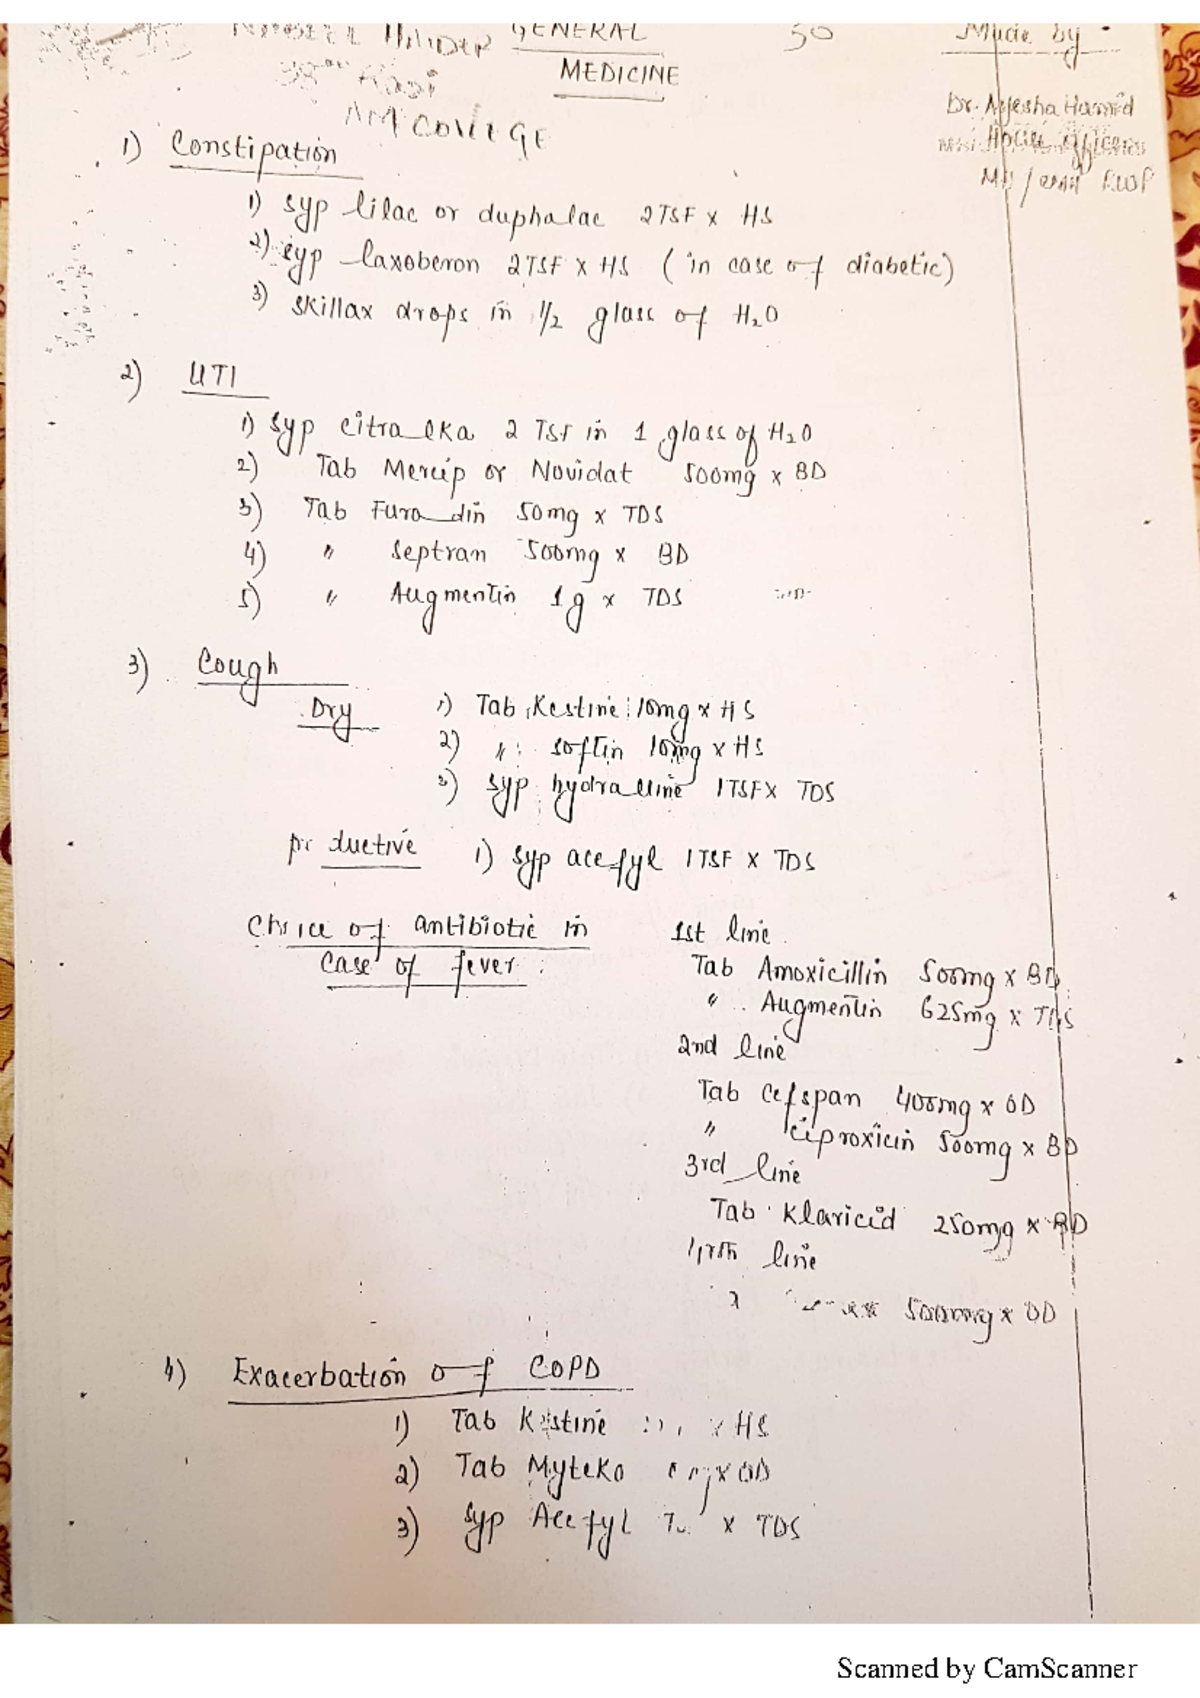 GENERAL 50 Made by
MEDICINE
Dr. Ayesha Hamid
AM COLLEGE House Officer
MH / CMH RWP
1) Constipation
1) Syp lilac or duphalac 2TSF x HS
2) Syp laxoberon 2TSF x HS (in case of diabetic)
3) skillax drops in 1/2 glass of H2O
2) UTI
1) Syp citralka 2 TSF in 1 glass of H2O
2) Tab Mercip or Novidat 500mg x BD
3) Tab Furadin 50mg x TDS
4) " septran 500mg x BD
5) " Augmentin 1g x TDS
3) Cough
Dry 1) Tab Kestine 10mg x HS
2) " softin 10mg x HS
3) syp hydralline 1TSF x TDS
productive 1) syp acefyl 1TSF x TDS
Choice of antibiotic in 1st line
case of fever: Tab Amoxicillin 500mg x BD
" Augmentin 625mg x TDS
2nd line
Tab cefspan 400mg x OD
" Ciproxicin 500mg x BD
3rd line
Tab Klaricid 250mg x BD
line
500mg x OD
4) Exacerbation of COPD
1) Tab Kestine x HS
2) Tab Myteka x OD
3) Syp Acefyl x TDS
Scanned by CamScanner